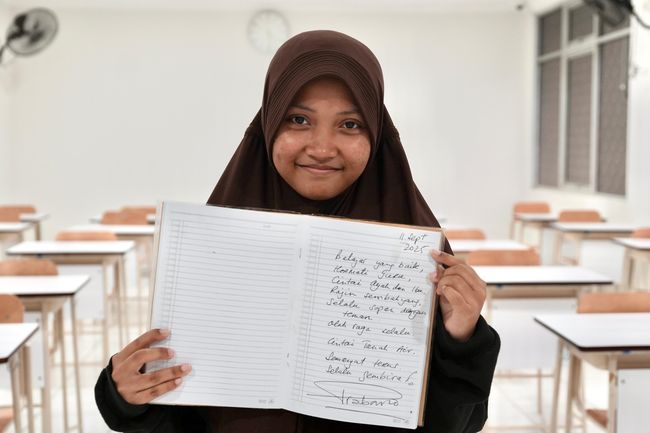 11 Sept
2025
Belajar yang baik,
Hormati guru,
Cintai ayah dan Ibu
Rajin sembahyang,
Selalu sopan dengan
teman
olah raga selalu
Cintai Tanah Air.
Semangat terus
Selalu gembira!
Prabowo